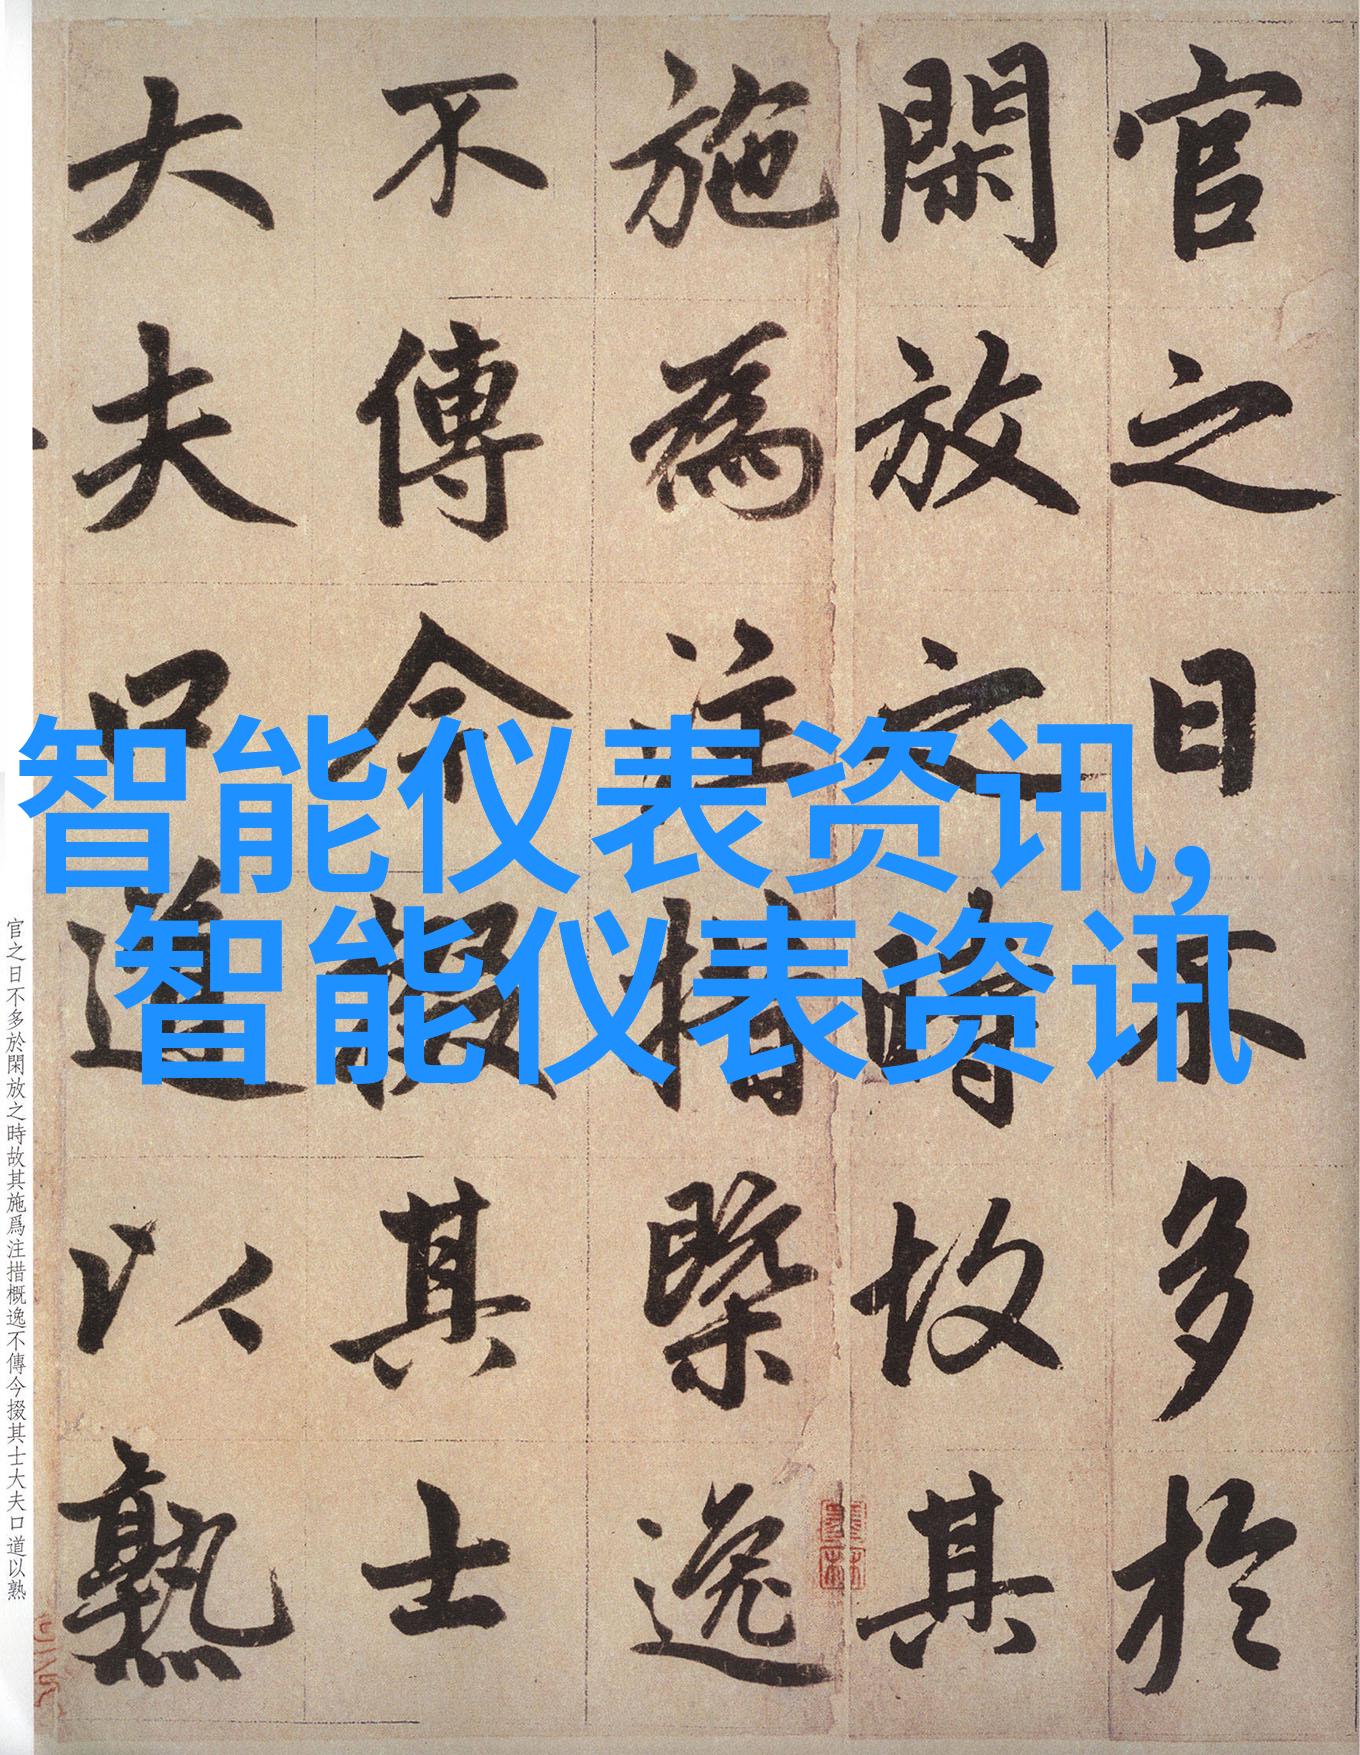 官之日不多於
閑放之時故其
施為注措槩逸
不傳今掇其士
大夫口道以熟
智能仪表资讯,
智能仪表资讯
官之日不多於閑放之時故其施爲注措概逸不傳今掇其士大夫口道以熟